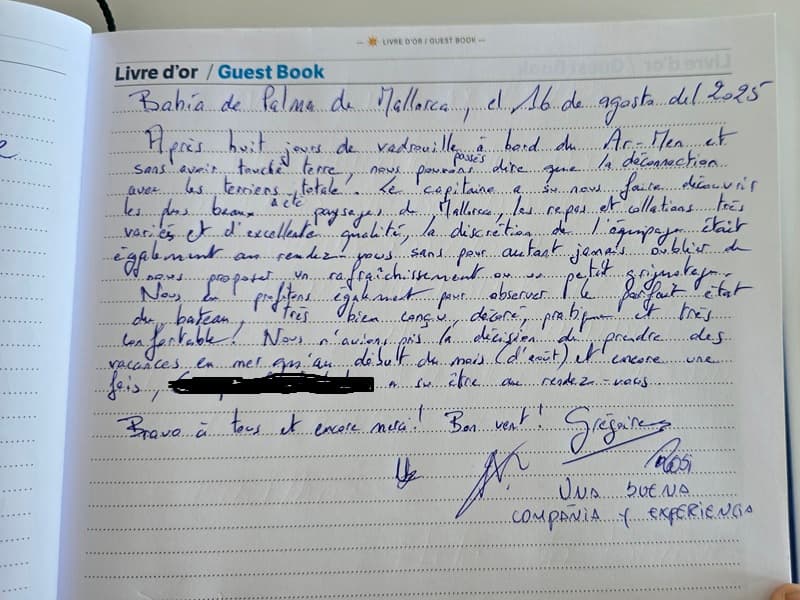 LIVRE D'OR / GUEST BOOK
Livre d'or / Guest Book
Bahía de Palma de Mallorca, el 16 de agosto del 2025
Après huit jours de vadrouille à bord du Ar-Men et
sans avoir touché terre, nous pouvons dire que la déconnection
passés
avec les terriens totale! Le capitaine a su nous faire découvrir
a été
les plus beaux paysages de Mallorca, les repas et collations très
variés et d'excellente qualité, la discrétion de l'équipage était
également au rendez-vous sans pour autant jamais oublier de
nous proposer un rafraîchissement ou un petit grignotage.
Nous en profitons également pour observer le parfait état
du bateau, très bien conçu, décoré, pratique et très
confortable! Nous n'avions pris la décision de prendre des
vacances en mer qu'au début du mois (d'août) et encore une
fois, a su être au rendez-vous
Bravo à tous et encore merci! Bon vent! Grégoire
Rosi
UNA BUENA
COMPAÑIA Y EXPERIENCIA